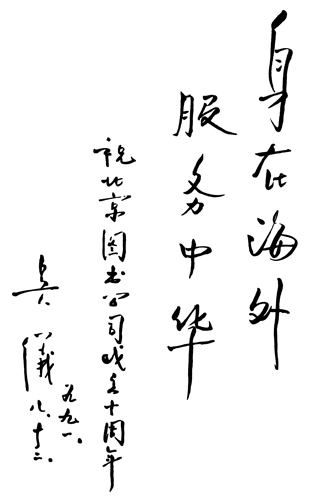 身在海外
服务中华
祝北京图书公司成立十周年
吴仪
一九九一.
八.十二.